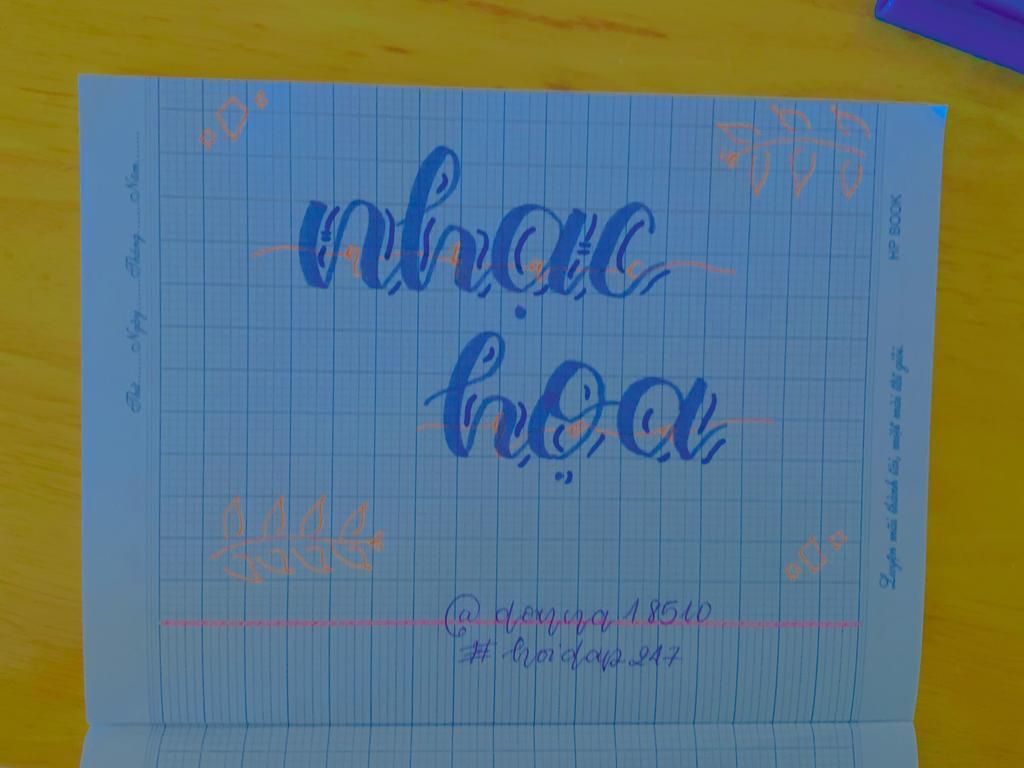 nhạc
họa
@ doyya18510
# hoidap247
Thứ.......Ngày.......Tháng.......Năm.......
HP BOOK
Luyện mãi thành tài, miệt mài tất giỏi.